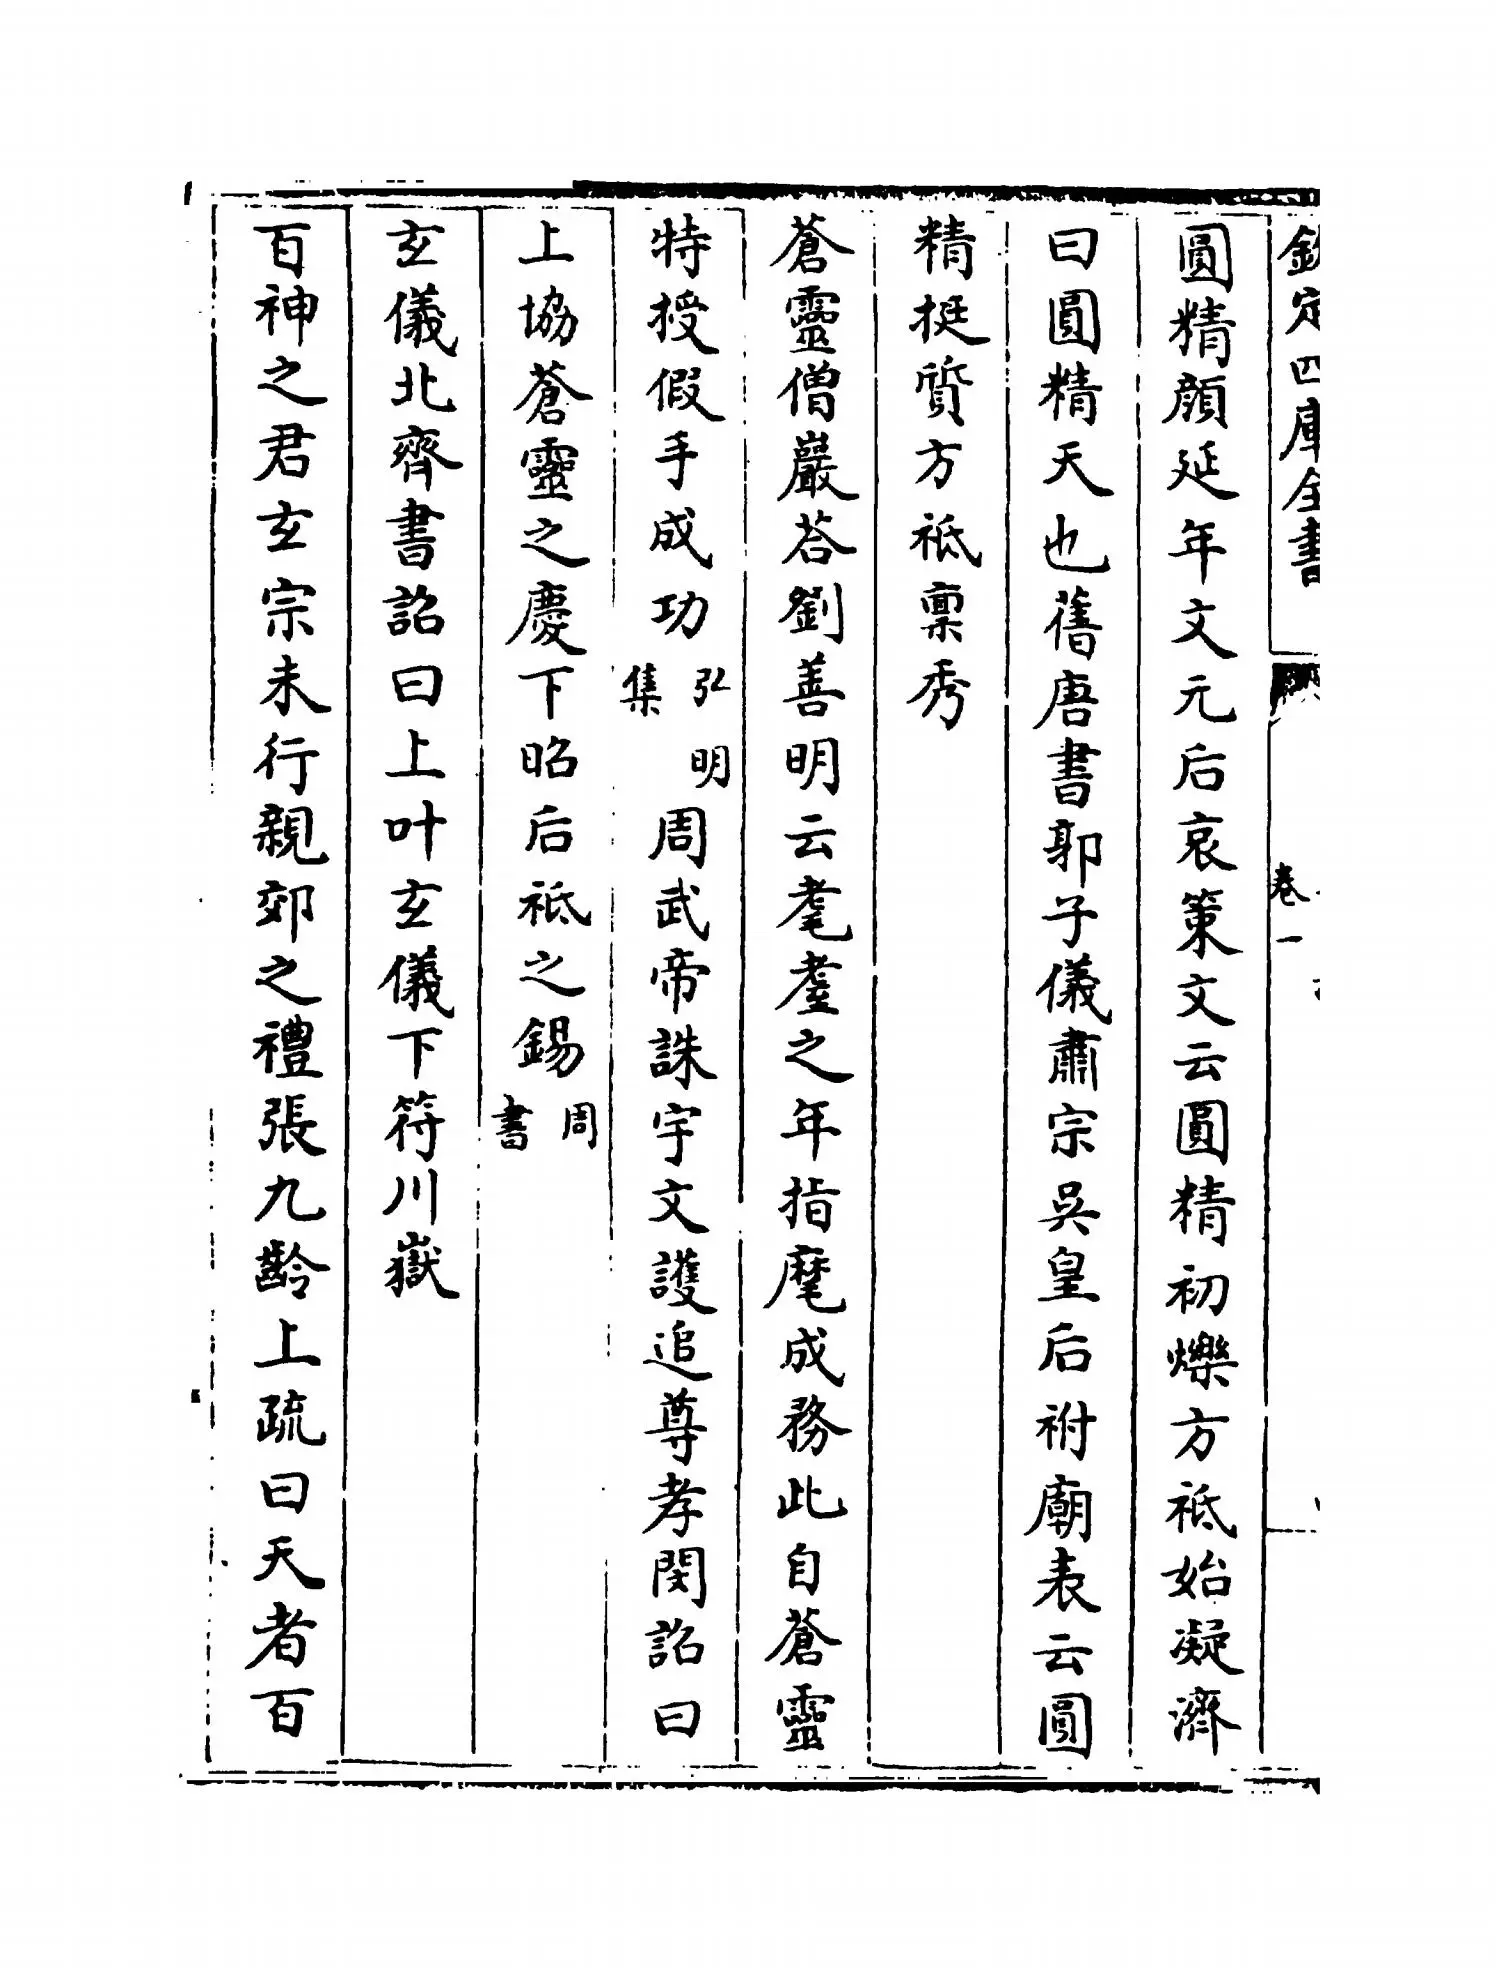 欽定四庫全書
卷一
圓精顔延年文元后哀策文云圓精初爍方祗始凝濟
曰圓精天也舊唐書郭子儀肅宗吳皇后祔廟表云圓
精挺質方祗稟秀
蒼靈僧巖荅劉善明云耄耋之年指麾成務此自蒼靈
特授假手成功弘明集周武帝誅宇文護追尊孝閔詔曰
上協蒼靈之慶下昭后祗之錫周書
玄儀北齊書詔曰上叶玄儀下符川嶽
百神之君玄宗未行親郊之禮張九齡上疏曰天者百